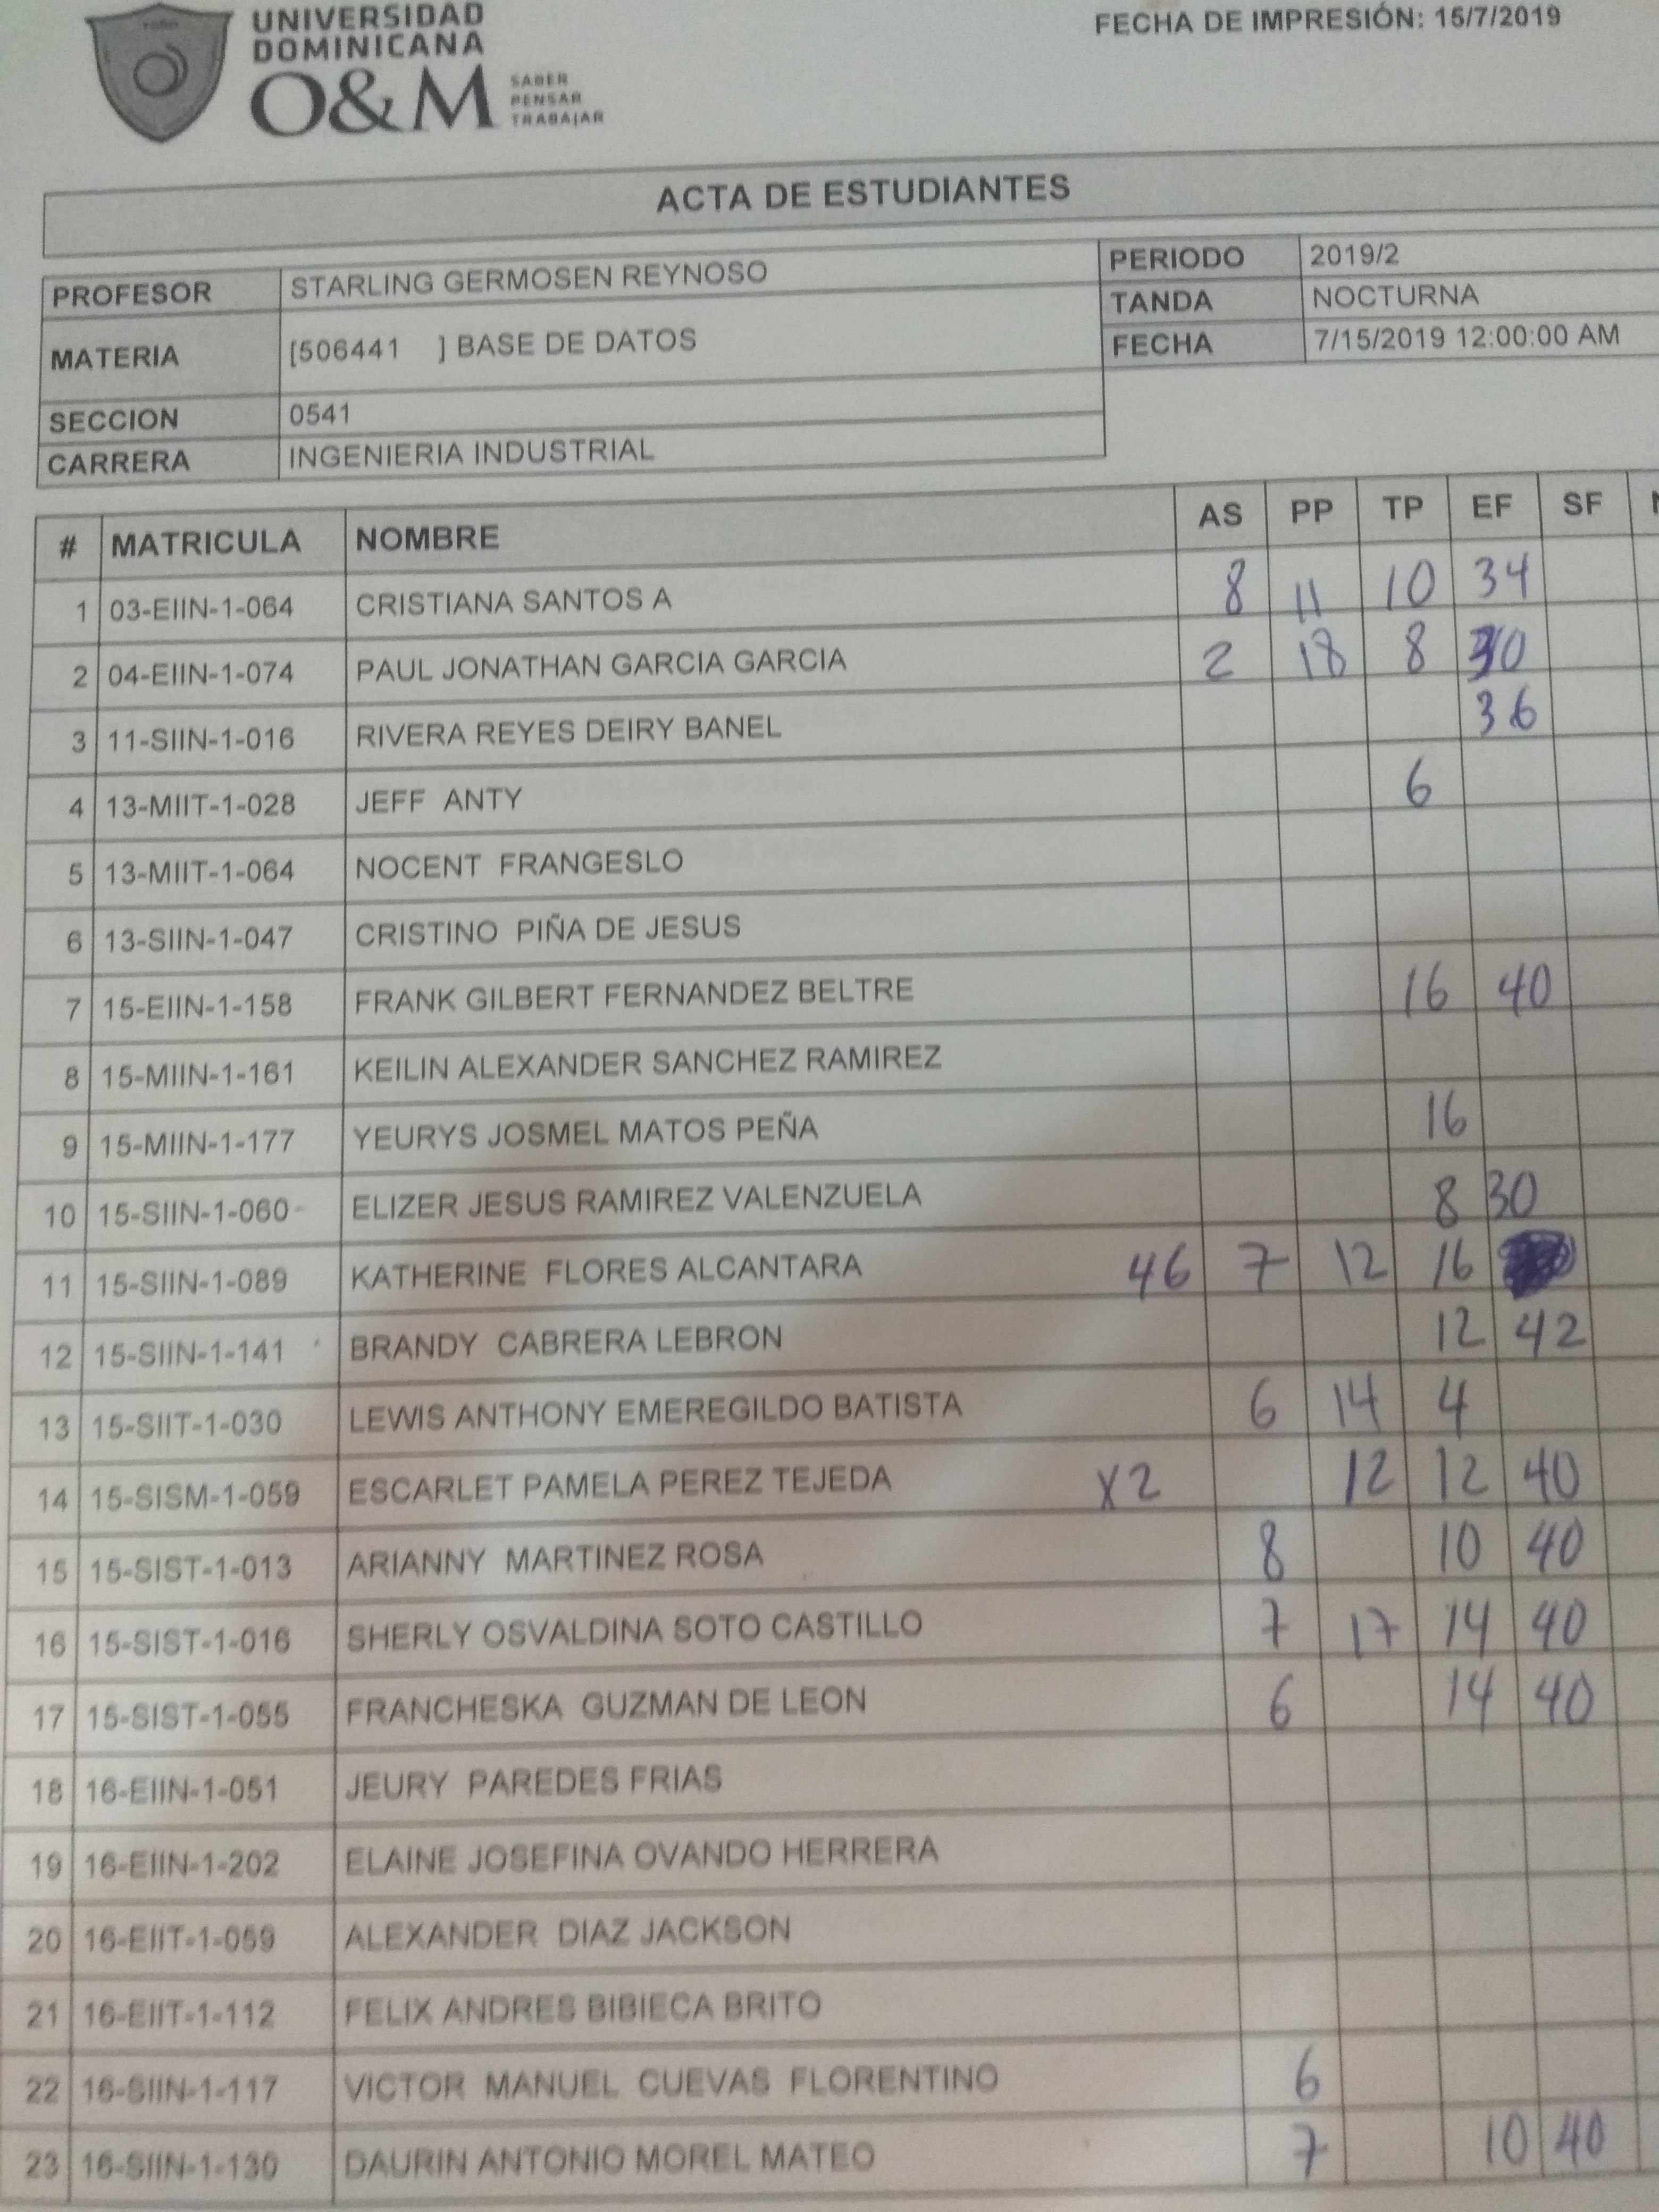 UNIVERSIDAD
DOMINICANA
O&M SABER PENSAR TRABAJAR
FECHA DE IMPRESIÓN: 15/7/2019
ACTA DE ESTUDIANTES
PROFESOR STARLING GERMOSEN REYNOSO PERIODO 2019/2
TANDA NOCTURNA
MATERIA [506441 ] BASE DE DATOS FECHA 7/15/2019 12:00:00 AM
SECCION 0541
CARRERA INGENIERIA INDUSTRIAL
# MATRICULA NOMBRE AS PP TP EF SF
1 03-EIIN-1-064 CRISTIANA SANTOS A 8 11 10 34
2 04-EIIN-1-074 PAUL JONATHAN GARCIA GARCIA 2 18 8 30
3 11-SIIN-1-016 RIVERA REYES DEIRY BANEL 36
4 13-MIIT-1-028 JEFF ANTY 6
5 13-MIIT-1-064 NOCENT FRANGESLO
6 13-SIIN-1-047 CRISTINO PIÑA DE JESUS
7 15-EIIN-1-158 FRANK GILBERT FERNANDEZ BELTRE 16 40
8 15-MIIN-1-161 KEILIN ALEXANDER SANCHEZ RAMIREZ
9 15-MIIN-1-177 YEURYS JOSMEL MATOS PEÑA 16
10 15-SIIN-1-060 ELIZER JESUS RAMIREZ VALENZUELA 8 30
11 15-SIIN-1-089 KATHERINE FLORES ALCANTARA 46 7 12 16
12 15-SIIN-1-141 BRANDY CABRERA LEBRON 12 42
13 15-SIIT-1-030 LEWIS ANTHONY EMEREGILDO BATISTA 6 14 4
14 15-SISM-1-059 ESCARLET PAMELA PEREZ TEJEDA X2 12 12 40
15 15-SIST-1-013 ARIANNY MARTINEZ ROSA 8 10 40
16 15-SIST-1-016 SHERLY OSVALDINA SOTO CASTILLO 7 17 14 40
17 15-SIST-1-055 FRANCHESKA GUZMAN DE LEON 6 14 40
18 16-EIIN-1-051 JEURY PAREDES FRIAS
19 16-EIIN-1-202 ELAINE JOSEFINA OVANDO HERRERA
20 16-EIIT-1-059 ALEXANDER DIAZ JACKSON
21 16-EIIT-1-112 FELIX ANDRES BIBIECA BRITO
22 16-SIIN-1-117 VICTOR MANUEL CUEVAS FLORENTINO 6
23 16-SIIN-1-130 DAURIN ANTONIO MOREL MATEO 7 10 40